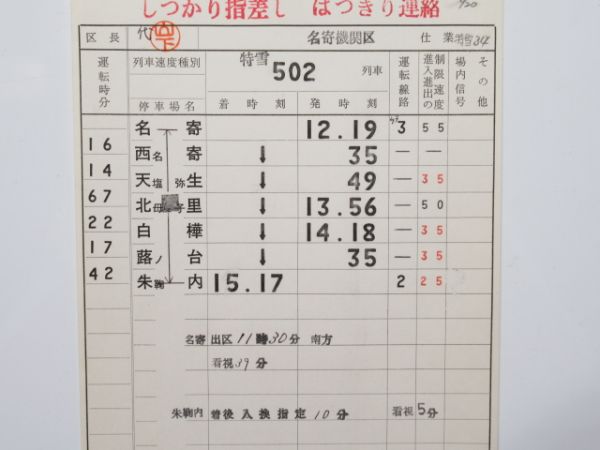 しつかり指差し はつきり連絡
区長 代 山下 名寄機関区 仕業
運転時分 列車速度種別 特雪 502 列車 運転線路 制限速度 進入進出の 場内信号 その他
停車場名 着時刻 発時刻
名寄 12.19 3 55
16
西名寄 ↓ 35 — —
14
天塩弥生 ↓ 49 — 35
67
北母子里 ↓ 13.56 — 50
22
白樺 ↓ 14.18 — 35
17
蕗ノ台 ↓ 35 — 35
42
朱鞠内 15.17 2 25
名寄 出区 11時30分 南方
看視39分
朱鞠内 着後入換指定10分 看視5分